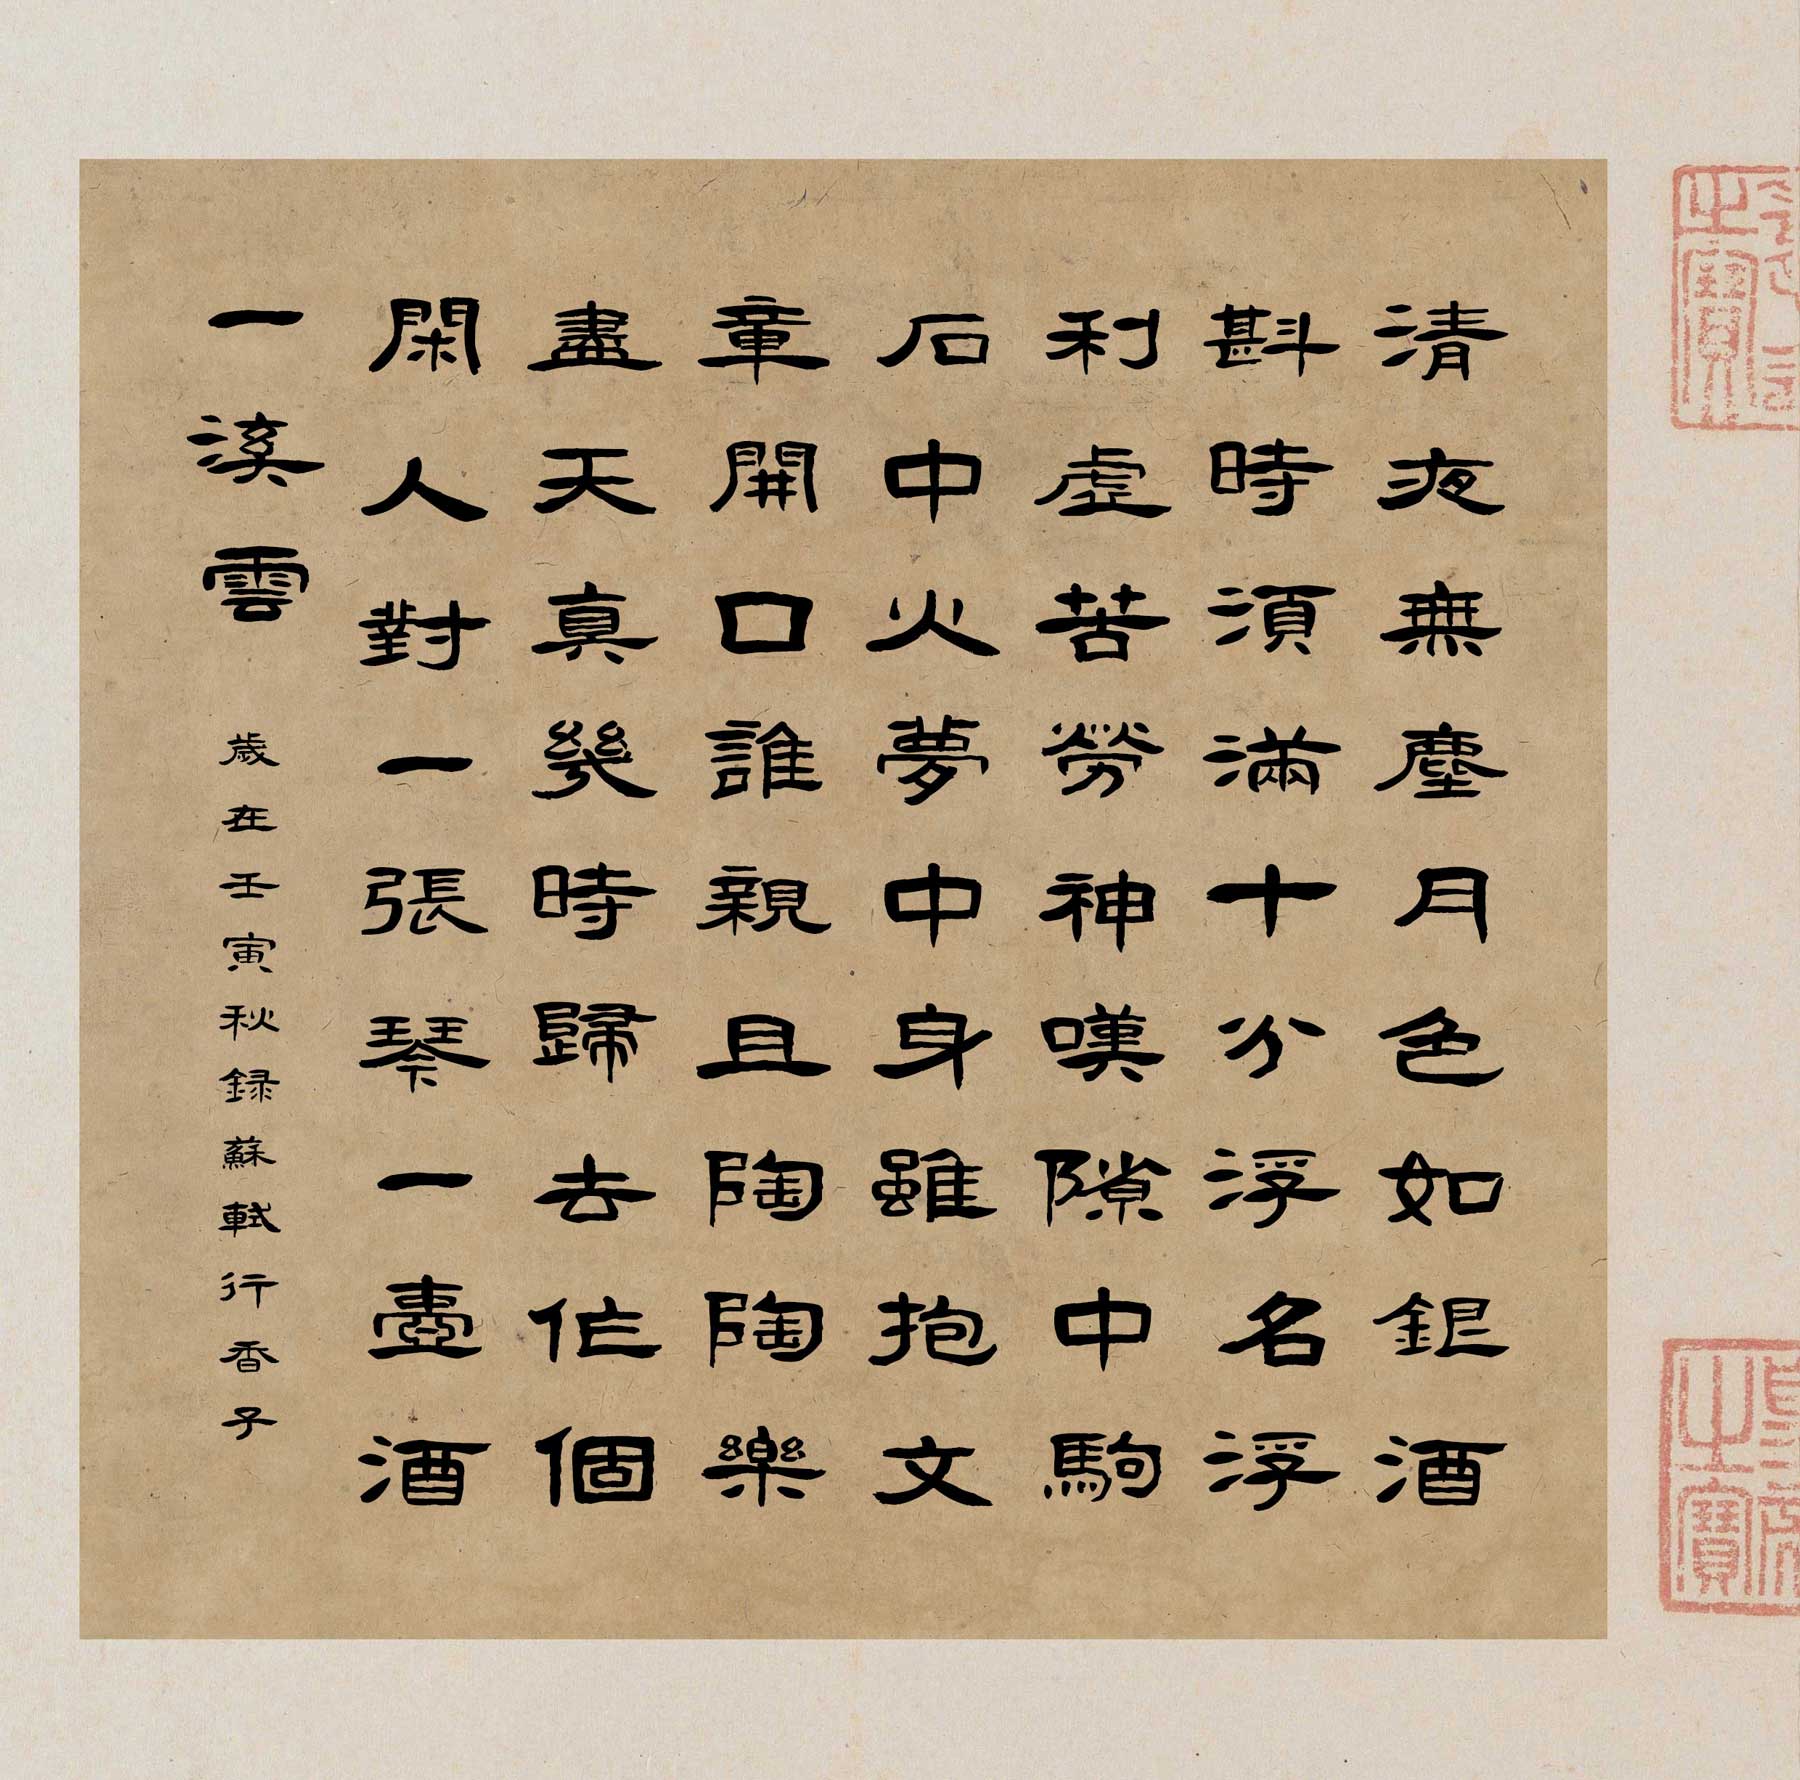 清夜無塵月色如銀酒
斟時須滿十分浮名浮
利虛苦勞神嘆隙中駒
石中火夢中身雖抱文
章開口誰親且陶陶樂
盡天真幾時歸去作個
閑人對一張琴一壺酒
一溪雲
歲在壬寅秋録蘇軾行香子
之寶
之寶